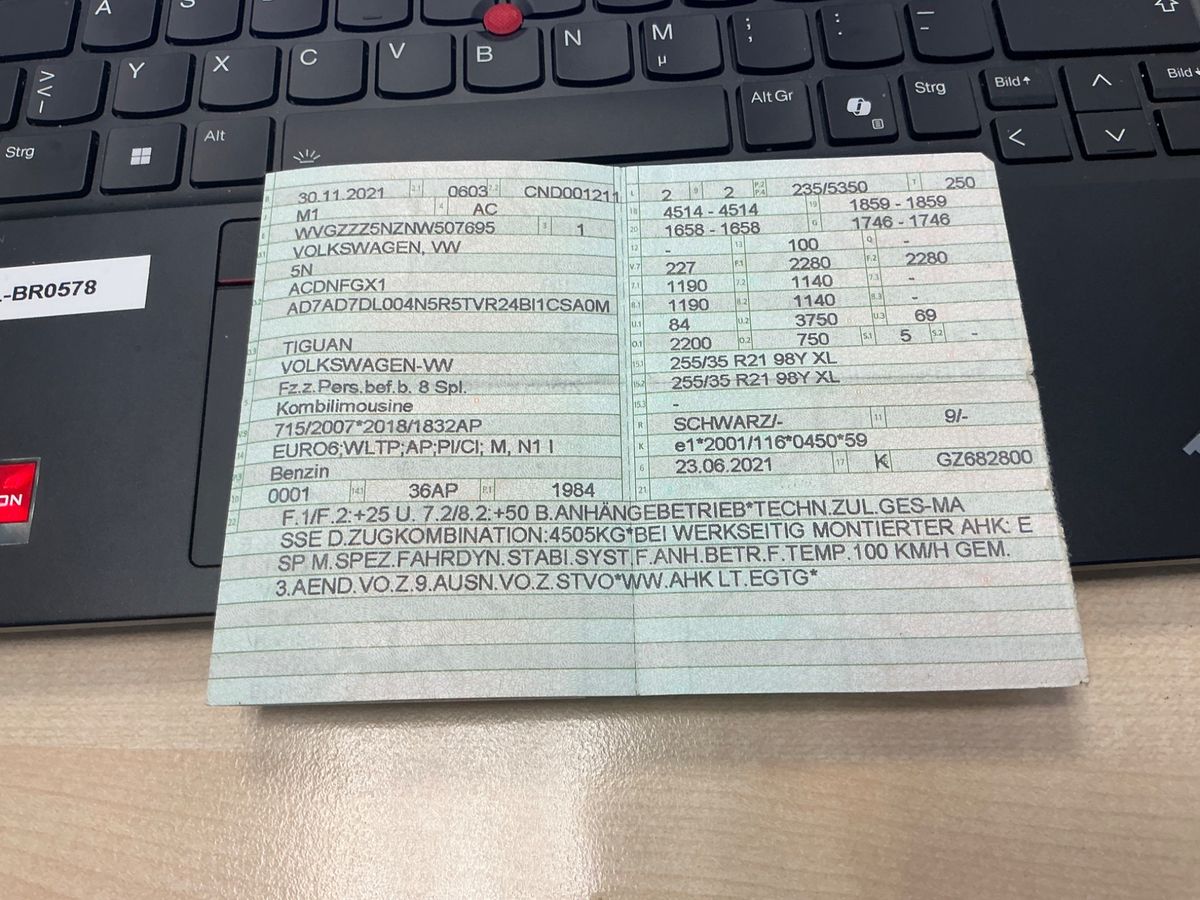 A S
Y X C V B N M µ ; , : . _ -
> < |
Alt Gr Strg Bild
Strg Alt
Bild
-BR0578
ON
B 30.11.2021 2.1 0603 2.2 CND001211
J M1 4 AC
E WVGZZZ5NZNW507695 3 1
D.1 VOLKSWAGEN, VW
5N
ACDNFGX1
D.2 AD7AD7DL004N5R5TVR24BI1CSA0M
D.3 TIGUAN
2 VOLKSWAGEN-VW
Fz.z.Pers.bef.b. 8 Spl.
5 Kombilimousine
V.9 715/2007*2018/1832AP
14 EURO6;WLTP;AP;PI/CI; M, N1 I
P.3 Benzin
10 0001 14.1 36AP P.1 1984
L 2 9 2 P.2 P.4 235/5350 T 250
18 4514 - 4514 19 1859 - 1859
20 1658 - 1658 G 1746 - 1746
12 - 13 100 Q -
V.7 227 F.1 2280 F.2 2280
7.1 1190 7.2 1140 7.3 -
8.1 1190 8.2 1140 8.3 -
U.1 84 U.2 3750 U.3 69
O.1 2200 O.2 750 S.1 5 S.2 -
15.1 255/35 R21 98Y XL
15.2 255/35 R21 98Y XL
15.3 -
R SCHWARZ/- 11 9/-
K e1*2001/116*0450*59
6 23.06.2021 17 K GZ682800
21
22 F.1/F.2:+25 U. 7.2/8.2:+50 B.ANHÄNGEBETRIEB*TECHN.ZUL.GES-MA
SSE D.ZUGKOMBINATION:4505KG*BEI WERKSEITIG MONTIERTER AHK: E
SP M.SPEZ.FAHRDYN.STABI.SYST.F.ANH.BETR.F.TEMP.100 KM/H GEM.
3.AEND.VO.Z.9.AUSN.VO.Z.STVO*WW.AHK LT.EGTG*